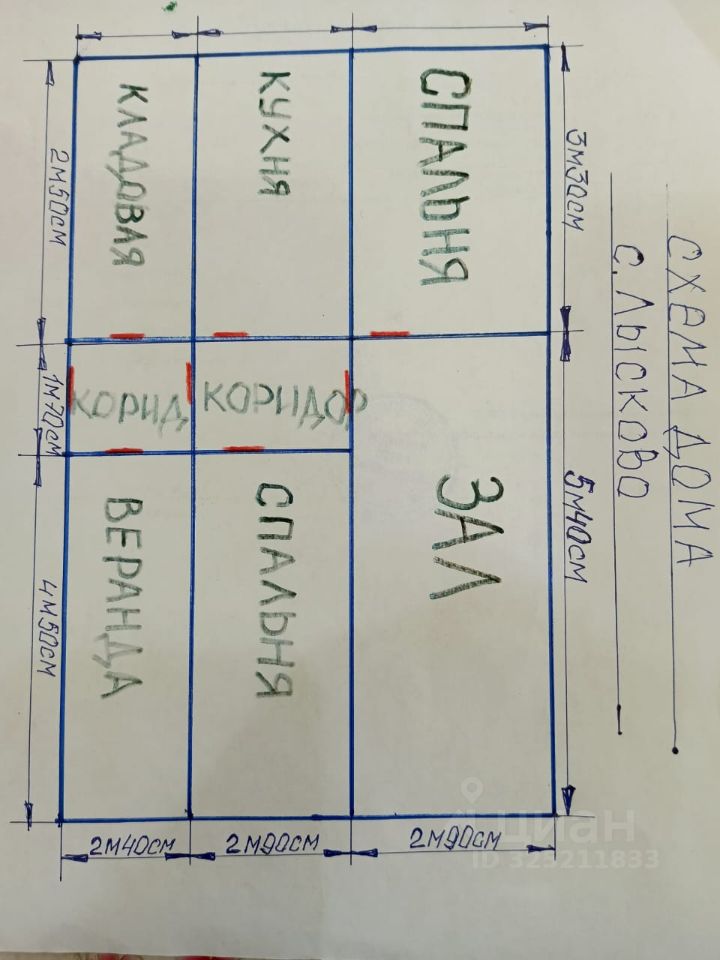 СХЕМА ДОМА
С. ЛЫСКОВО
3м30см
5м40см
СПАЛЬНЯ
ЗАЛ
КУХНЯ
КОРИДОР
СПАЛЬНЯ
КЛАДОВАЯ
КОРИД
ВЕРАНДА
2м50см
1м70см
4м50см
2м40см
2м90см
2м90см
циан
ID 325211833